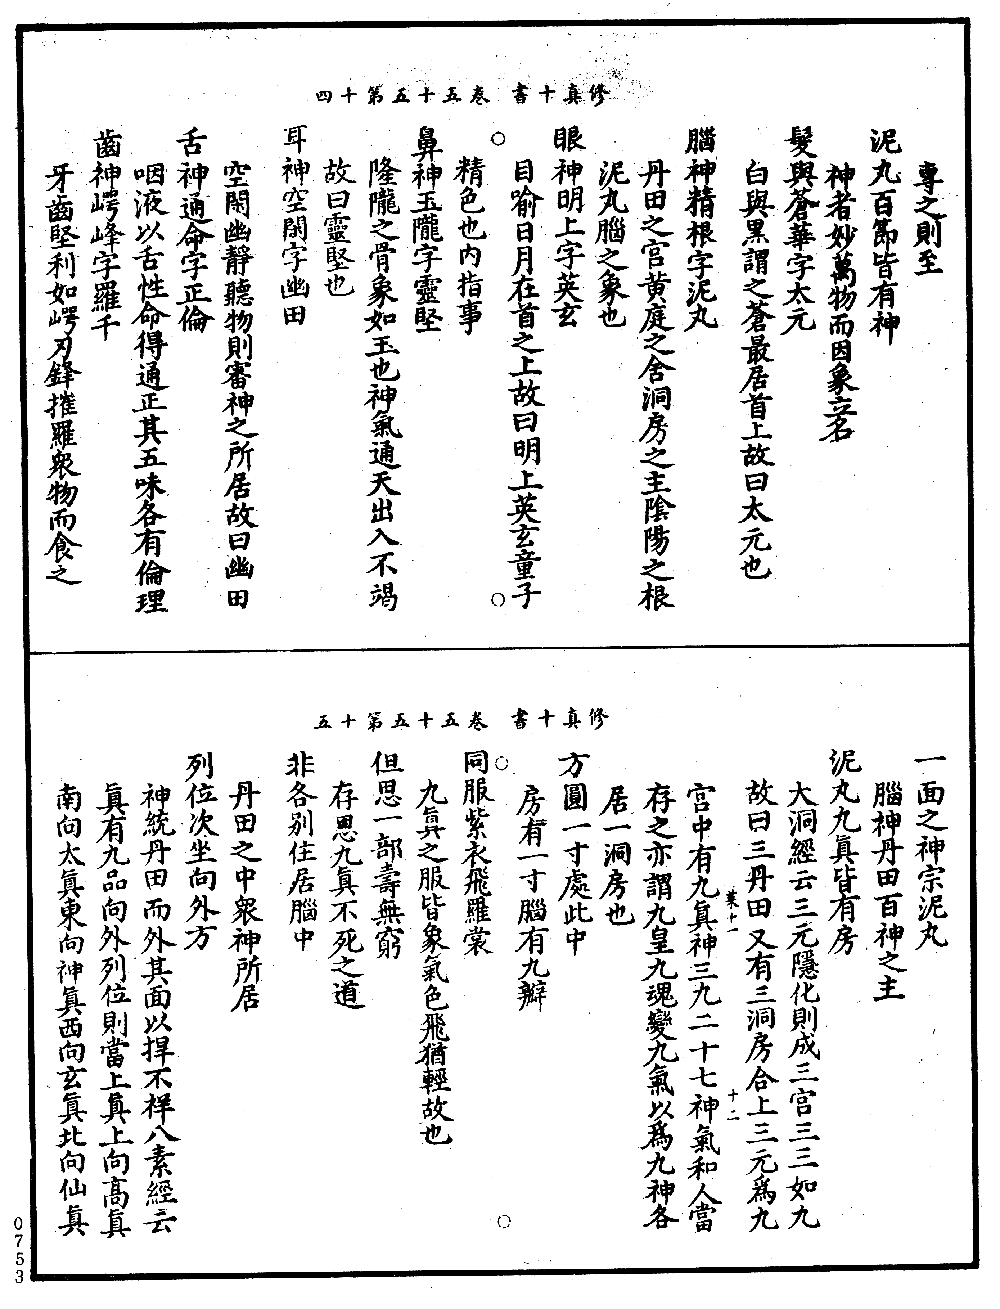 修真十書 卷五十五第十四
專之則至
泥丸百節皆有神
神者妙萬物而因象立名
髮與蒼華字太元
白與黑謂之蒼最居首上故曰太元也
腦神精根字泥丸
丹田之宮黃庭之舍洞房之主陰陽之根
泥丸腦之象也
眼神明上字英玄
目喻日月在首之上故曰明上英玄童子
精色也內指事
鼻神玉隴字靈堅
隆隴之骨象如玉也神氣通天出入不竭
故曰靈堅也
耳神空閑字幽田
空閑幽靜聽物則審神之所居故曰幽田
舌神通命字正倫
咽液以舌性命得通正其五味各有倫理
齒神崿峰字羅千
牙齒堅利如崿刃鋒摧羅衆物而食之
修真十書 卷五十五第十五
一面之神宗泥丸
腦神丹田百神之主
泥丸九眞皆有房
大洞經云三元隱化則成三宮三三如九
故曰三丹田又有三洞房合上三元爲九
菜十一
十二
宮中有九眞神三九二十七神氣和人當
存之亦謂九皇九魂變九氣以爲九神各
居一洞房也
方圓一寸處此中
房有一寸腦有九瓣
同服紫衣飛羅裳
九眞之服皆象氣色飛猶輕故也
但思一部壽無窮
存思九眞不死之道
非各別住居腦中
丹田之中衆神所居
列位次坐向外方
神統丹田而外其面以捍不祥八素經云
眞有九品向外列位則當上眞上向高眞
南向太眞東向神眞西向玄眞北向仙眞
0753